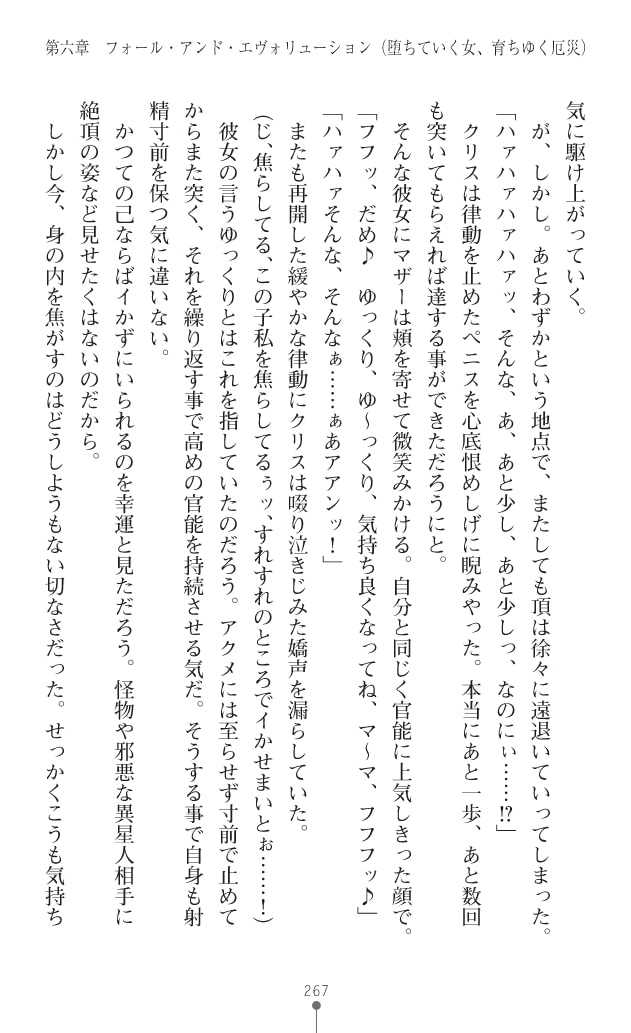 第六章　フォール・アンド・エヴォリューション（堕ちていく女、育ちゆく厄災）
気に駆け上がっていく。
　が、しかし。あとわずかという地点で、またしても頂は徐々に遠退いていってしまった。
「ハァハァハァハァッ、そんな、あ、あと少し、あと少しっ、なのにぃ……⁉」
　クリスは律動を止めたペニスを心底恨めしげに睨みやった。本当にあと一歩、あと数回
も突いてもらえれば達する事ができただろうにと。
　そんな彼女にマザーは頬を寄せて微笑みかける。自分と同じく官能に上気しきった顔で。
「フフッ、だめ♪　ゆっくり、ゆ～っくり、気持ち良くなってね、マ～マ、フフフッ♪」
「ハァハァそんな、そんなぁ……ぁあアアンッ！」
　またも再開した緩やかな律動にクリスは啜り泣きじみた嬌声を漏らしていた。
（じ、焦らしてる、この子私を焦らしてるぅッ、すれすれのところでイかせまいとぉ……！）
　彼女の言うゆっくりとはこれを指していたのだろう。アクメには至らせず寸前で止めて
からまた突く、それを繰り返す事で高めの官能を持続させる気だ。そうする事で自身も射
精寸前を保つ気に違いない。
　かつての己ならばイかずにいられるのを幸運と見ただろう。怪物や邪悪な異星人相手に
絶頂の姿など見せたくはないのだから。
　しかし今、身の内を焦がすのはどうしようもない切なさだった。せっかくこうも気持ち
267